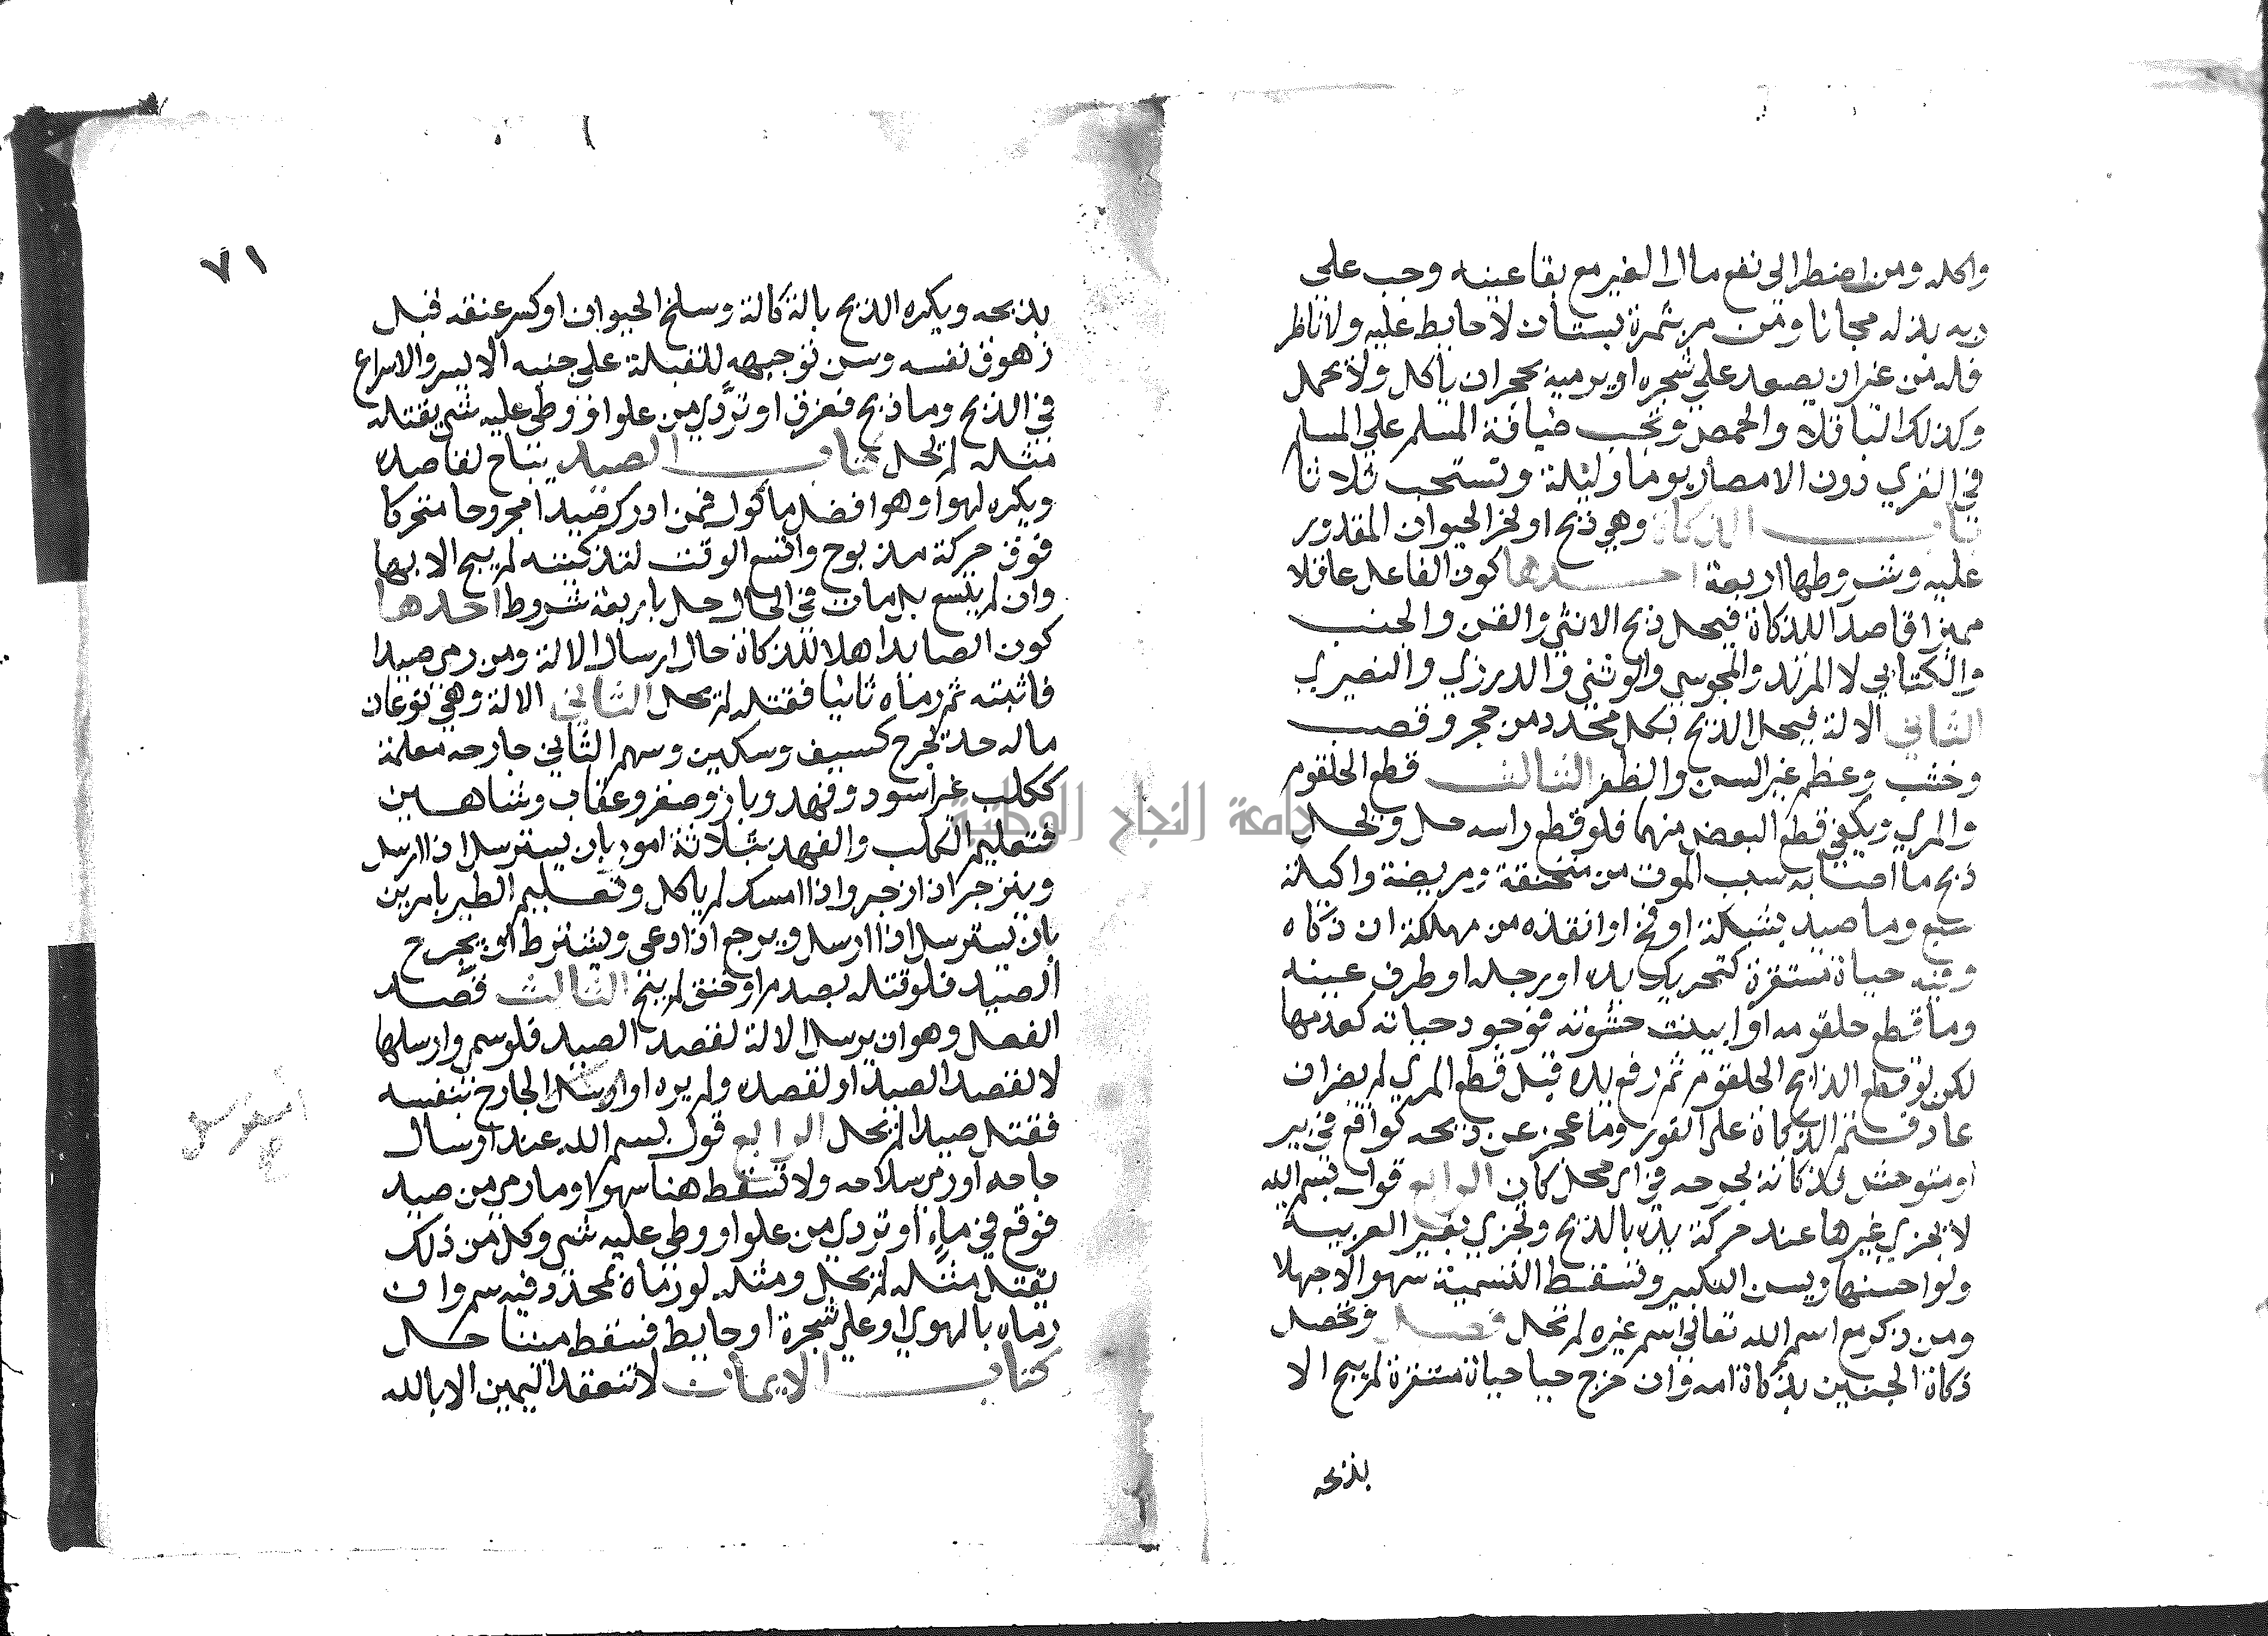 واكله ومن اضطر الى نفع مال الغير مع بقا عينه وجب على
ربه بذله مجانا ومن مر بثمرة بستان لا حايط عليه ولا ناظر
فله من غير ان يصعد علي شجره او يرميه بحجر ان ياكل ولا يحمل
وكذلك الباقلا والحمص وتجب ضيافة المسلم علي المسلم
في القري دون الامصار يوما وليلة وتستحب ثلاثا
باب الذكاة وهي ذبح او نحر الحيوان المقدور
عليه وشروطها اربعة احدها كون الفاعل عاقلا
مميزا قاصدا للذكاة فيحل ذبح الانثي والقن والجنب
والكتابي لا المرتد والمجوسي والوثني والدرزي والنصيري
الثاني الالة فيحل الذبح بكل محدد من حجر وقصب
وخشب وعظم غير السن والظفر الثالث قطع الحلقوم
والمري ويكفي قطع البعض منهما فلو قطع راسه حل ويحل
ذبح ما اصابه سبب الموت من منخنقة ومريضة واكيلة
سبع وما صيد بشبكة او فخ او انقذه من مهلكة ان ذكاه
وفيه حياة مستقرة كتحريك يده او رجله او طرف عينه
وما قطع حلقومه او ابينت حشوته فوجود حياته كعدمها
لكن لو قطع الذابح الحلقوم ثم رفع يده قبل قطع المري لم يضر ان
عاد فتمم الذكاة على الفور وما عجز عن ذبحه كواقع في بير
او متوحش فذكاته بجرحه في اي محل كان الرابع قول بسم الله
لا يجزي غيرها عند حركة يده بالذبح وتجزي بغير العربية
ولو احسنها ويسن التكبير وتسقط التسمية سهوا لا جهلا
ومن ذكر مع اسم الله تعالي اسم غيره لم تحل فصل وتحصل
ذكاة الجنين بذكاة امه وان خرج حيا حياة مستقرة لم يبح الا
بذبحه
٧١
بذبحه ويكره الذبح بالة كالة وسلخ الحيوان او كسر عنقه قبل
زهوق نفسه وسن توجيهه للقبلة علي جنبه الايسر والاسراع
في الذبح وما ذبح فغرق او تردي من علو او وطي عليه شي يقتله
مثله لم يحل كتاب الصيد يباح لقاصده
ويكره لهوا وهو افضل ماكول فمن ادرك صيدا مجروحا متحركا
فوق حركة مذبوح واتسع الوقت لتذكيته لم يبح الا بها
وان لم يتسع بل مات في الحال حل باربعة شروط احدها
كون الصايد اهلا للذكاة حال ارسال الالة ومن رمي صيدا
فاثبته ثم رماه ثانيا فقتله لم يحل الثاني الالة وهي نوعان
ماله حد يجرح كسيف وسكين وسهم الثاني جارحه معلمة
ككلب غير اسود وفهد وباز وصقر وعقاب وشاهين
فتعليم الكلب والفهد بثلاثة امور بان يسترسل اذا ارسل
وينزجر اذا زجر واذا امسك لم ياكل وتعليم الطير بامرين
بان يسترسل اذا ارسل ويرجع اذا دعي ويشترط ان يجرح
الصيد فلو قتله بصدم او خنق لم يبح الثالث قصد
الفعل وهو ان يرسل الالة لقصد الصيد فلو سمى وارسلها
لا لقصد الصيد او لقصده ولم يره او استرسل الجارح بنفسه
فقتل صيدا لم يحل الرابع قول بسم الله عند ارسال
جارحه او رمي سلاحه ولا تسقط هنا سهوا وما رمي من صيد
فوقع في ماء او تردي من علو او وطي عليه شي وكل من ذلك
يقتل مثله لم يحل ومثله لو رماه بمحدد فيه سم وان
رماه بالهوي او علي شجرة او حايط فسقط ميتا حل
كتاب الايمان لا تنعقد اليمين الا بالله
جامعة النجاح الوطنية